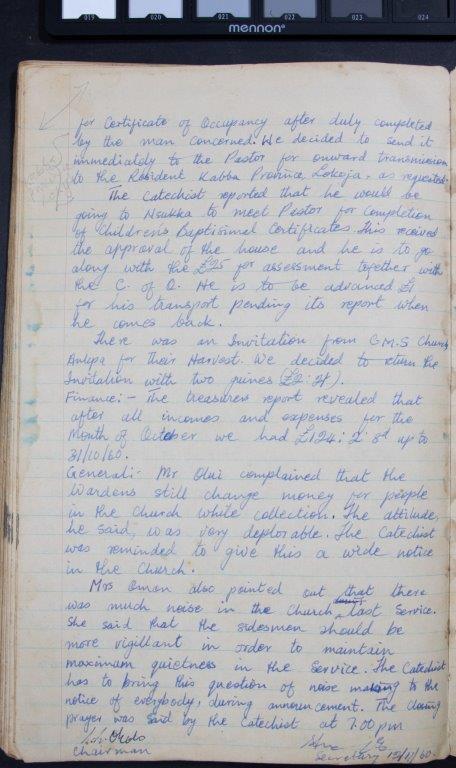 019 020 021 022 023 024
mennon
for Certificate of Occupancy after duly completed
by the man concerned. We decided to send it
immediately to the Pastor for onward transmission
to the Resident Kabba Province, Lokoja, as requested.
The Catechist reported that he would be
going to Nsukka to meet Pastor for completion
of Children's Baptisimal Certificates. This received
the approval of the house and he is to go
along with the £25 for assessment together with
the C. of O. He is to be advanced £1
for his transport pending its report when
he comes back.
There was an Invitation from C.M.S Church
Ankpa for their Harvest. We decided to return the
Invitation with two guines (£2:2/).
Finance:- The treasurers report revealed that
after all incomes and expenses for the
Month of October we had £124:2: 8d up to
31/10/60.
General:- Mr Olui complained that the
Wardens still change money for people
in the Church while collection. The attitude,
he said, was very deplorable. The Catechist
was reminded to give this a wide notice
in the Church.
Mrs Oman also pointed out that there
was much noise in the Church last Service.
She said that the sidesmen should be
more vigillant in order to maintain
maximum quietness in the Service. The Catechist
has to bring this question of noise making to the
notice of everybody, during announcement. The closing
prayer was said by the Catechist at 7.00 pm
Okolo
Chairman
Secretary 15/11/60.